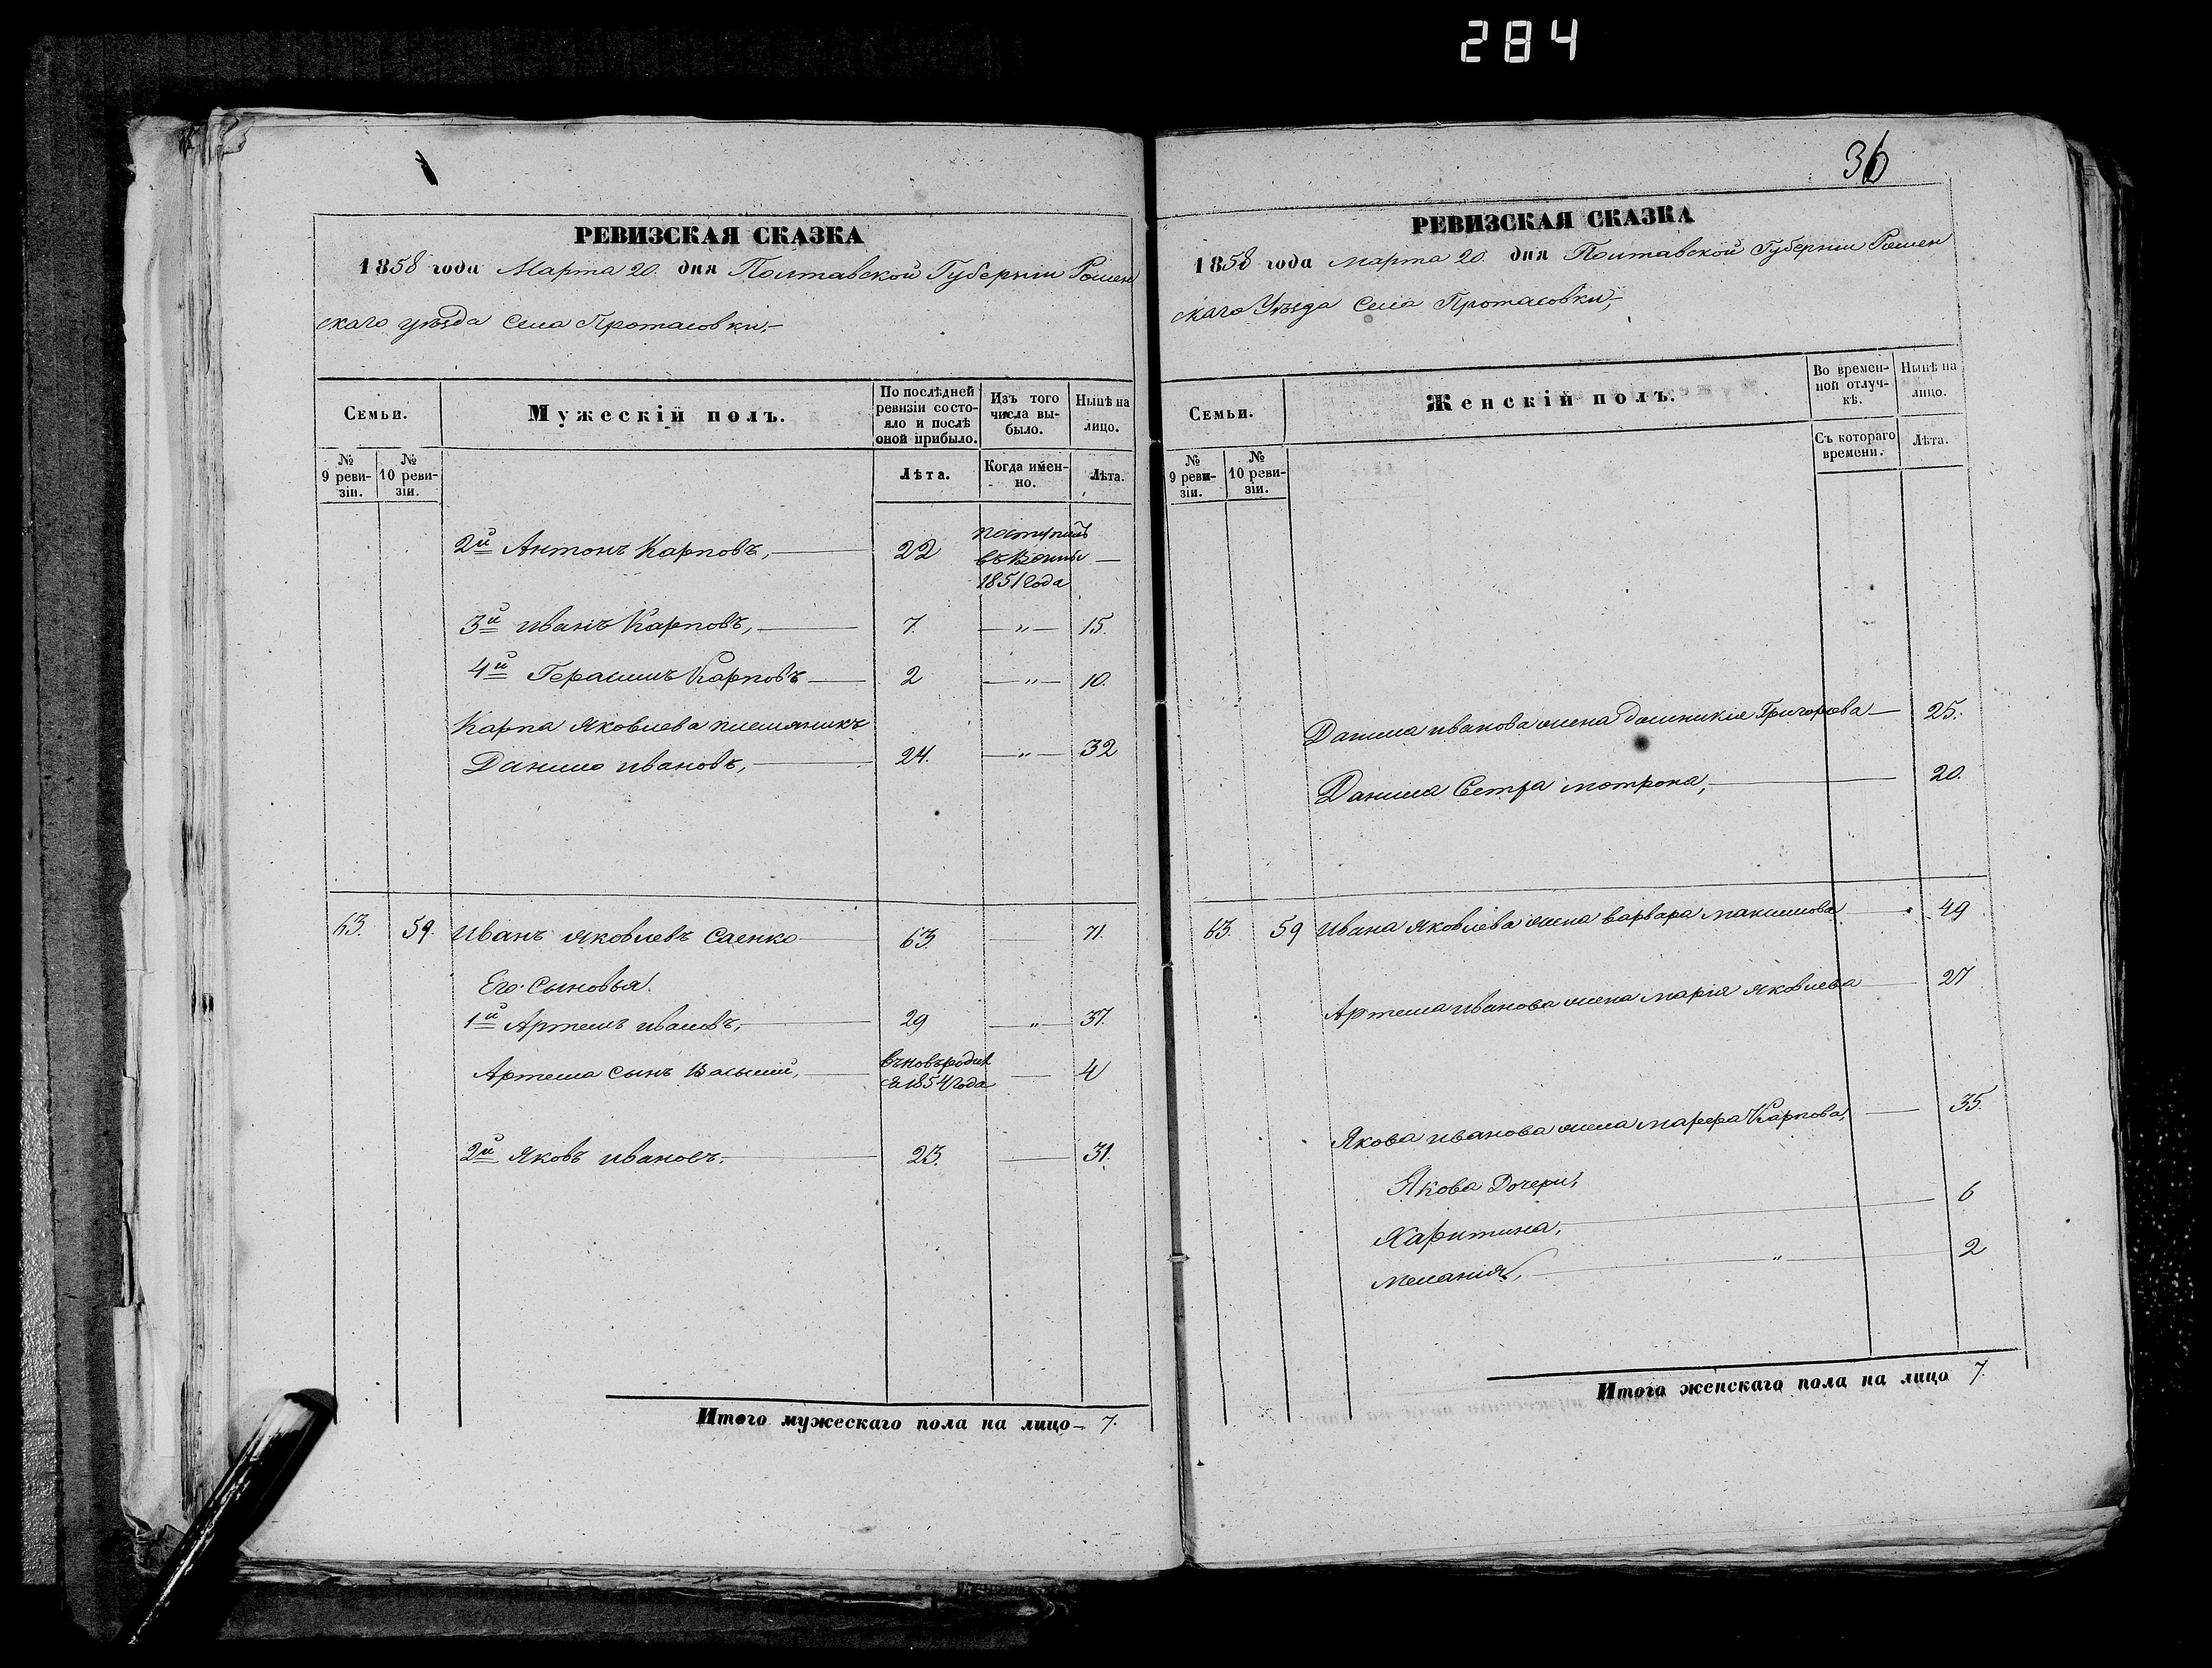 284
РЕВИЗСКАЯ СКАЗКА
1858 года Марта 20. дня Полтавской Губерніи Ромен
скаго уѣзда Села Протасовки,–
Семьи.
Мужескій полъ.
По послѣдней ревизіи состо-
яло и послѣ оной прибыло.
Изъ того числа вы-
было.
Нынѣ на лицо.
№ 9 реви-
зіи.
№ 10 реви-
зіи.
Лѣта.
Когда имен-
но.
Лѣта.
2й Антонъ Карповъ, 22
1851 года —
3й Иванъ Карповъ, 7. — „ — 15.
4й Герасимъ Карповъ 2 — „ — 10.
Карпа Яковлева племяникъ
Данило Ивановъ, 24. — „ — 32
63. 59. Иванъ Яковлевъ Саенко 63. 71.
Его Сыновья
1й Артемъ Ивановъ, 29 — „ — 37.
Артема сынъ Василий, вновьродил
ся 1854 года 4
2й Яковъ Ивановъ. 23. 31.
Итого мужескаго пола на лицо – 7.
36
РЕВИЗСКАЯ СКАЗКА
1858 года марта 20 дня Полтавской Губерніи Ромен
скаго Уѣзда Села Протасовки,–
Семьи.
Женскій полъ.
Во времен-
ной отлуч-
кѣ.
Нынѣ на лицо.
№ 9 реви-
зіи.
№ 10 реви-
зіи.
Съ котораго времени.
Лѣта.
Данила Иванова жена Домникія Григорьева 25.
Данила Сетра мотрона, 20.
63. 59 Ивана Яковлева жена варвара максимова 49
Артема Иванова жена марія Яковлева 27
Якова Иванова жена марфа Карпова, 35.
Якова Дочери,
Харитина, 6
меланія, „ 2
Итого женскаго пола на лицо 7.